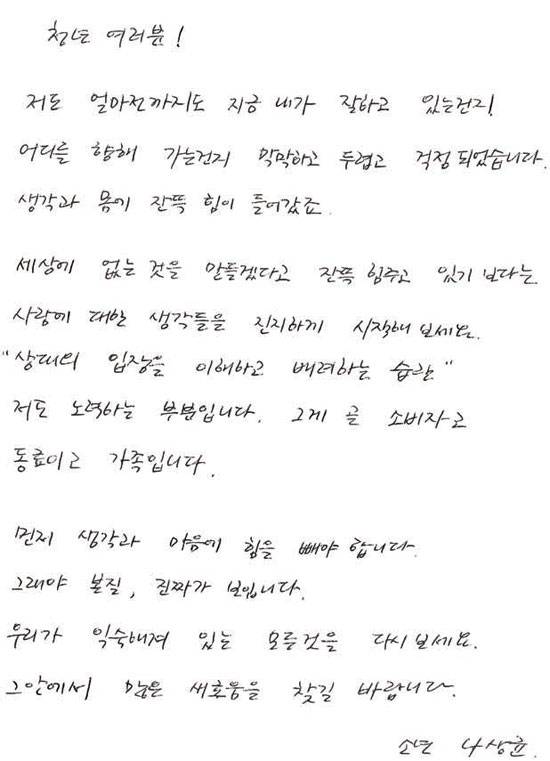 청년 여러분!
저도 얼마전까지도 지금 내가 잘하고 있는건지!
어디를 향해 가는건지 막막하고 두렵고 걱정되었습니다.
생각과 몸에 잔뜩 힘이 들어갔죠.
세상에 없는 것을 만들겠다고 잔뜩 힘주고 있기 보다는
사랑에 대한 생각들을 진지하게 시작해 보세요.
"상대의 입장을 이해하고 배려하는 습관"
저도 노력하는 부분입니다. 그게 곧 소비자고
동료이고 가족입니다.
먼저 생각과 마음에 힘을 빼야 합니다.
그래야 본질, 진짜가 보입니다.
우리가 익숙해져 있는 모든것을 다시보세요.
그안에서 많은 새로움을 찾길 바랍니다.
소년 나상균.